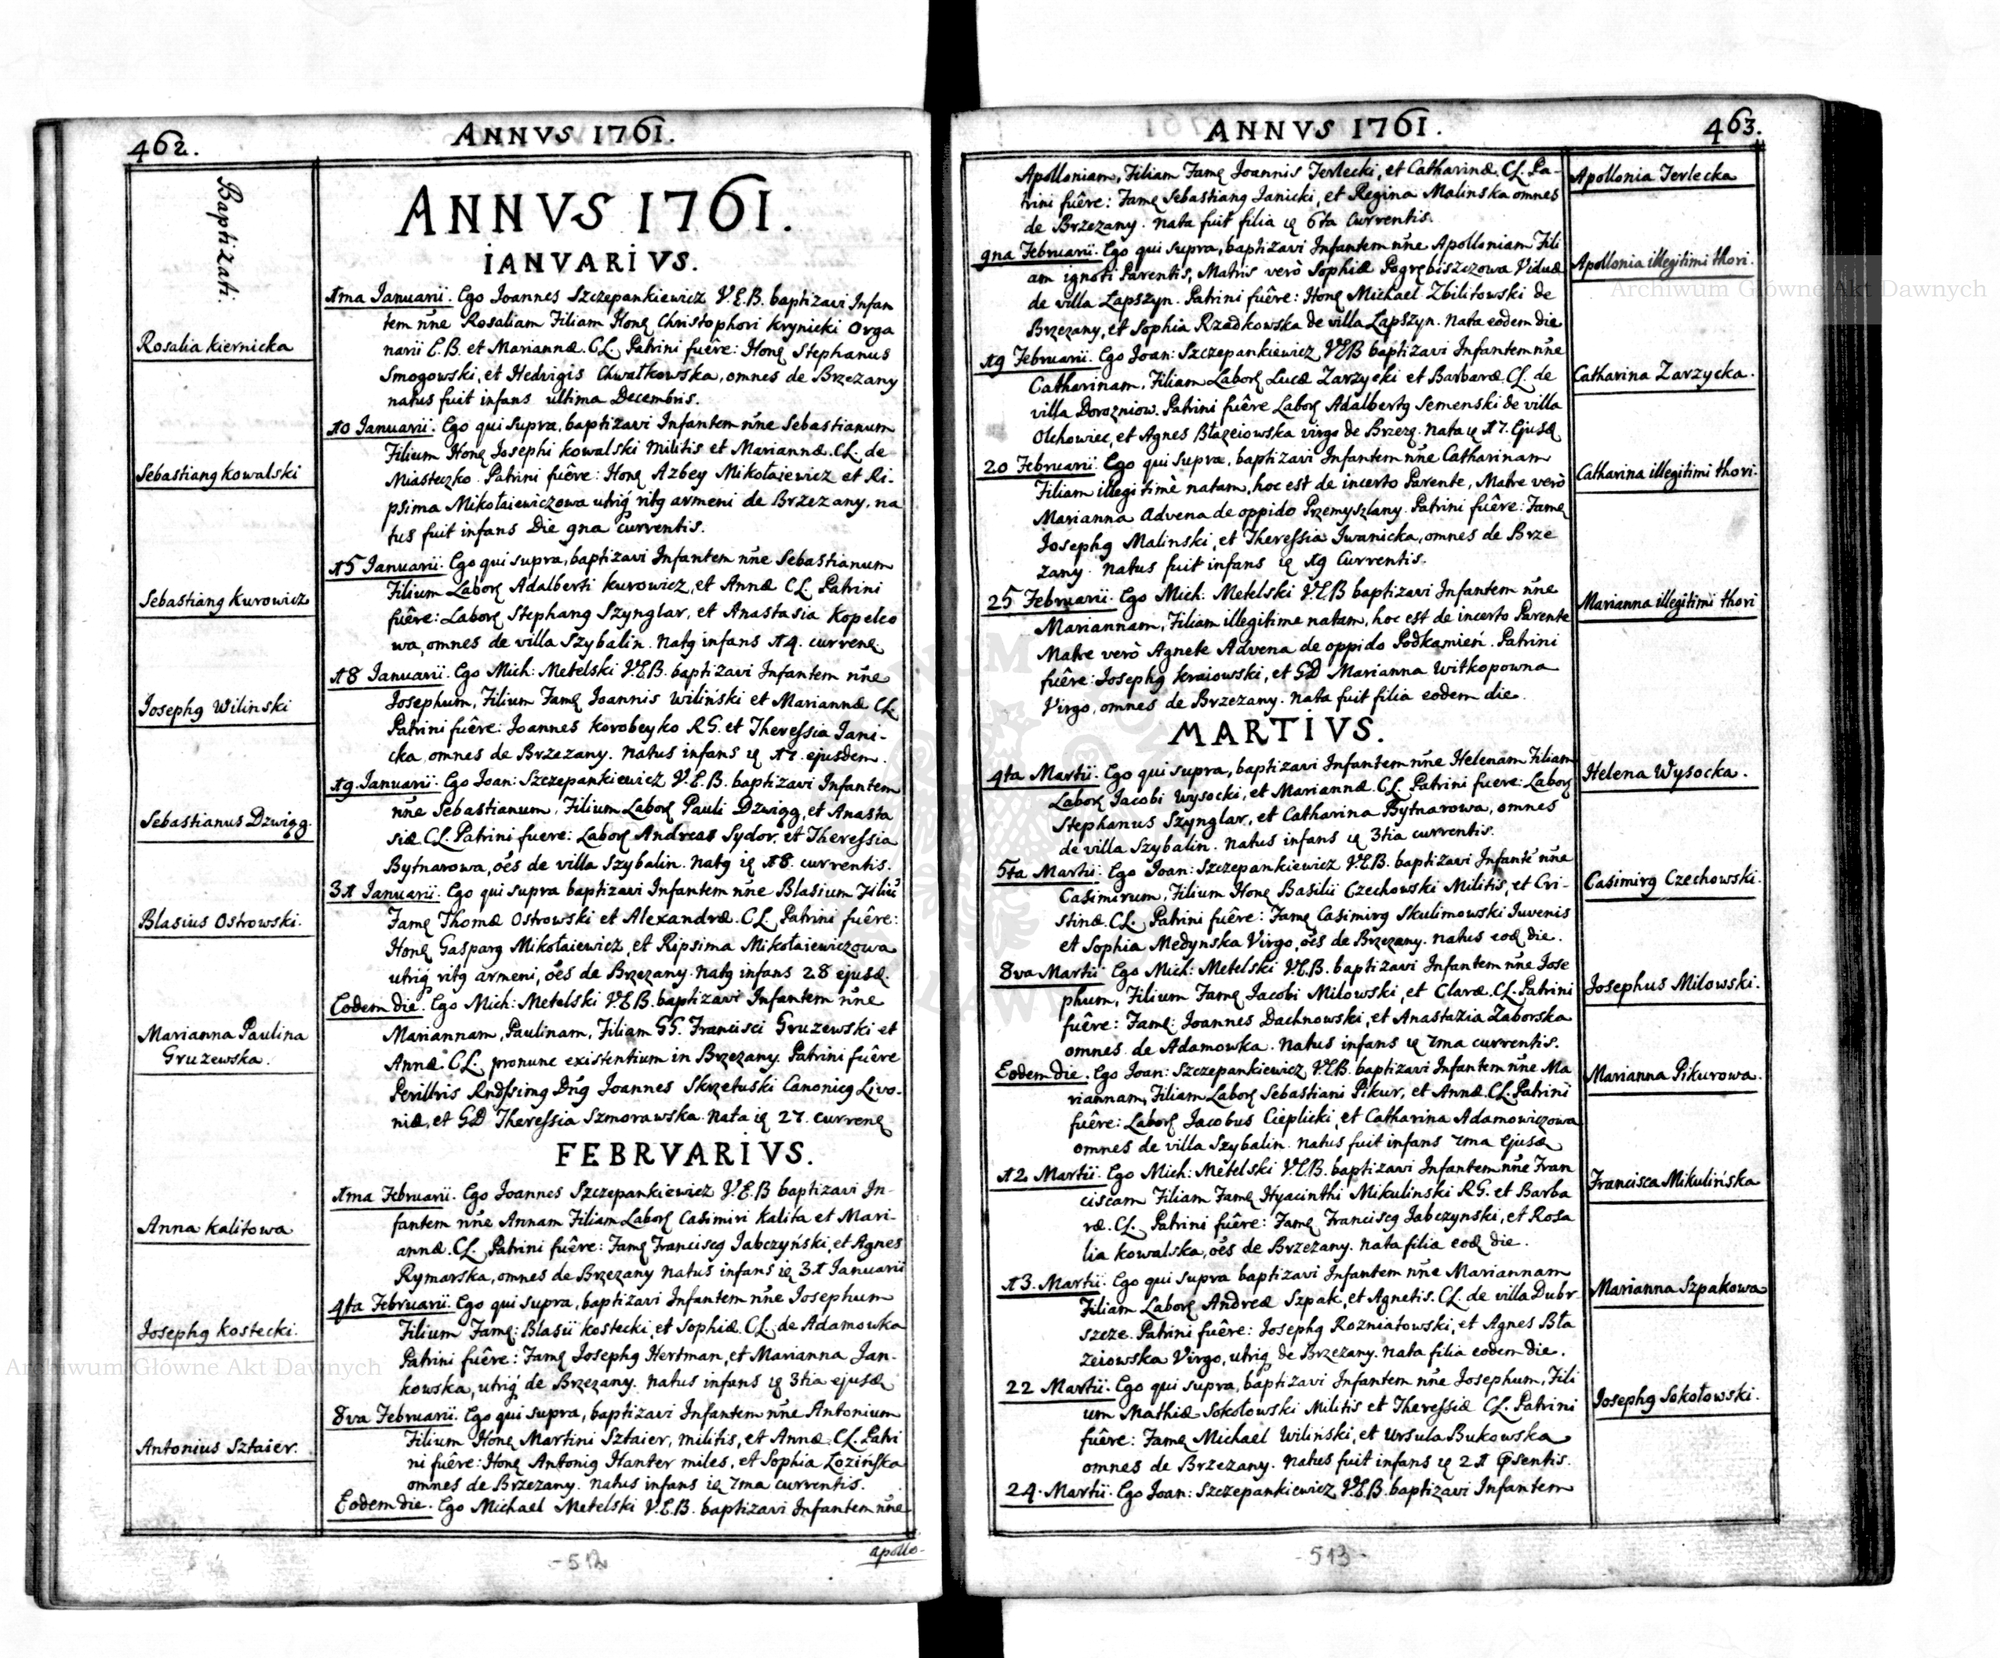 462.
ANNVS 1761.
Baptizati.
ANNVS 1761.
IANVARIVS.
1ma Ianuarii. Ego Ioannes Szczepankiewicz V.E.B. baptizavi Infan
tem nne Rosaliam Filiam Hong Christophori Krynicki Orga
narii E.B. et Mariannæ. CL. Patrini fuêre: Hong Stephanus
Smogowski, et Hedvigis Chwałkowska, omnes de Brzezany
natus fuit infans ultima Decembris.
Rosalia Kiernicka
10 Ianuarii. Ego qui supra, baptizavi Infantem nne Sebastianum
Filium Hong Iosephi Kowalski Militis et Mariannæ. CL. de
Miasteczko. Patrini fuêre: Hong Azbey Mikołaiewicz et Ri-
psima Mikołaiewiczowa utriq ritq armeni de Brzezany, na
tus fuit infans Die 9na currentis.
Sebastianq Kowalski
15 Ianuarii. Ego qui supra, baptizavi Infantem nne Sebastianum
Filium Labor Adalberti Kurowicz, et Annæ CL. Patrini
fuêre: Labor Stephanq Szynglar, et Anastasia Kopelco
wa, omnes de villa Szybalin. Natq infans 14. curren.
Sebastianq Kurowicz
18 Ianuarii. Ego Mich: Metelski V.E.B. baptizavi Infantem nne
Iosephum, Filium Fam Ioannis Wiliński et Mariannæ CL
Patrini fuêre: Ioannes Korobeyko R.G. et Theressia Iani-
cka, omnes de Brzezany. Natus infans ie 17. ejusdem.
Iosephq Wilinski
19. Ianuarii. Ego Ioan: Szczepankiewicz V.E.B. baptizavi Infantem
nne Sebastianum, Filium Labor Pauli Dzwigg, et Anasta
siæ CL. Patrini fuere: Labor Andreas Sydor, et Theressia
Bytnarowa, oes de villa Szybalin. Natq ie 18. currentis.
Sebastianus Dzwigg.
31 Ianuarii. Ego qui supra baptizavi Infantem nne Blasium Filiu
Fam Thomæ Ostrowski et Alexandræ. CL. Patrini fuêre:
Hong Gasparq Mikołaiewicz, et Ripsima Mikołaiewiczowa
utriq ritq armeni, oes de Brzezany. Natq infans 28 ejusd.
Blasius Ostrowski.
Eodem die. Ego Mich: Metelski V.E.B. baptizavi Infantem nne
Mariannam, Paulinam, Filiam GG. Francisci Gruzewski et
Annæ CL. pronunc existentium in Brzezany. Patrini fuêre
Perillris Rndssimq Dnq Ioannes Skrzetuski Canonicq Livo-
niæ, et GD Theressia Szmorawska. Nata ie 27. curren
Marianna Paulina
Gruzewska.
FEBRVARIVS.
1ma Februarii. Ego Ioannes Szczepankiewicz V.E.B baptizavi In-
fantem nne Annam Filiam Labor Casimiri Kalita et Mari-
annæ. CL. Patrini fuêre: Fam Franciscq Iabczyński, et Agnes
Rymarska, omnes de Brzezany natus infans ie 31 Ianuarii
Anna Kalitowa
4ta Februarii. Ego qui supra, baptizavi Infantem nne Iosephum
Filium Fam: Blasii Kostecki, et Sophiæ. CL. de Adamowka
Patrini fuêre: Fam Iosephq Hertman, et Marianna Ian-
kowska, utriq de Brzezany. Natus infans ie 3tia ejusd
Iosephq Kostecki.
8va Februarii. Ego qui supra, baptizavi Infantem nne Antonium
Filium Hong Martini Sztaier, militis, et Annæ. CL. Patri
ni fuêre: Hong Antonig Hanter miles, et Sophia Lozińska
omnes de Brzezany. Natus infans ie 7ma currentis.
Antonius Sztaier.
Eodem die. Ego Michael Metelski V.E.B. baptizavi Infantem nne
apollo-
-512
463.
ANNVS 1761.
Apolloniam, Filiam Fam Ioannis Terlecki, et Catharinæ. CL. Pa-
trini fuêre: Fam Sebastianq Ianicki, et Regina Malinska omnes
de Brzezany. Nata fuit filia ie 6ta Currentis.
Apollonia Terlecka
9na Februarii. Ego qui supra, baptizavi Infantem nne Apolloniam Fili
am ignoti Parentis, Matris verò Sophiæ Pogrębiszczowa Viduæ
de villa Lapszyn. Patrini fuêre: Hong Michael Zbilitowski de
Brzezany, et Sophia Rzadkowska de villa Lapszyn. Nata eodem die
Apollonia illegitimi thori.
19 Februarii. Ego Ioan: Szczepankiewicz V.E.B baptizavi Infantem nne
Catharinam, Filiam Labor Lucæ Zarzycki et Barbaræ. CL. de
villa Dorozniow. Patrini fuêre Labor Adalbertq Semenski de villa
Olchowiec, et Agnes Błazeiowska virgo de Brzez. Nata ie 17. Ejusd
Catharina Zarzycka.
20 Februarii. Ego qui supra, baptizavi Infantem nne Catharinam
Filiam illegitimè natam, hoc est de incerto Parente, Matre verò
Marianna Advena de oppido Przemyszlany. Patrini fuêre: Fam
Iosephq Malinski, et Theressia Iwanicka, omnes de Brze
zany. Natus fuit infans ie 19 Currentis.
Catharina illegitimi thori.
25 Februarii. Ego Mich: Metelski V.E.B baptizavi Infantem nne
Mariannam, Filiam illegitime natam, hoc est de incerto Parente
Matre verò Agnete Advena de oppido Podkamień. Patrini
fuêre: Iosephq Kraiowski, et GD Marianna Witkopowna
Virgo, omnes de Brzezany. Nata fuit filia eodem die.
Marianna illegitimi thori
MARTIVS.
4ta Martii. Ego qui supra, baptizavi Infantem nne Helenam Filiam
Labor Iacobi Wysocki, et Mariannæ. CL. Patrini fuere: Labor
Stephanus Szynglar, et Catharina Bytnarowa, omnes
de villa Szybalin. Natus infans ie 3tia currentis.
Helena Wysocka.
5ta Martii. Ego Ioan: Szczepankiewicz V.E.B. baptizavi Infante nne
Casimirum, Filium Hong Basilii Czechowski Militis, et Cri-
stinæ. CL. Patrini fuêre: Fam Casimirq Skulimowski Iuvenis
et Sophia Medynska Virgo, oes de Brzezany. Natus eod die.
Casimirq Czechowski.
8va Martii Ego Mich: Metelski V.E.B. baptizavi Infantem nne Iose
phum, Filium Fam Iacobi Milowski, et Claræ. CL. Patrini
fuêre: Fam: Ioannes Dachnowski, et Anastazia Zaborska
omnes de Adamowka. Natus infans ie 7ma currentis.
Iosephus Milowski.
Eodem die. Ego Ioan: Szczepankiewicz V.E.B. baptizavi Infantem nne Ma
riannam, Filiam Labor Sebastiani Pikur, et Annæ CL. Patrini
fuêre: Labor Iacobus Cieplicki, et Catharina Adamowiczowa
omnes de villa Szybalin. Natus fuit infans 7ma Ejusd
Marianna Pikurowa.
12. Martii. Ego Mich: Metelski V.E.B. baptizavi Infantem nne Fran
ciscam Filiam Fam Hyacinthi Mikulinski R.G. et Barba
ræ. CL. Patrini fuêre: Fam Franciscq Iabczynski, et Rosa
lia Kowalska, oes de Brzezany. Nata filia eod die.
Francisca Mikulińska
13. Martii. Ego qui supra baptizavi Infantem nne Mariannam
Filiam Labor Andreæ Szpak, et Agnetis. CL. de villa Dubr
szcze. Patrini fuêre: Iosephq Rozniatowski, et Agnes Bła
zeiowska Virgo, utriq de Brzezany. Nata filia eodem die.
Marianna Szpakowa
22 Martii. Ego qui supra, baptizavi Infantem nne Iosephum, Fili
um Mathiæ Sokołowski Militis et Theressiæ CL. Patrini
fuêre: Fam Michael Wiliński, et Ursula Bukowska
omnes de Brzezany. Natus fuit infans ie 21 psentis.
Iosephq Sokołowski.
24. Martii. Ego Ioan: Szczepankiewicz V.E.B. baptizavi Infantem
-513-
Archiwum Główne Akt Dawnych
Archiwum Główne Akt Dawnych